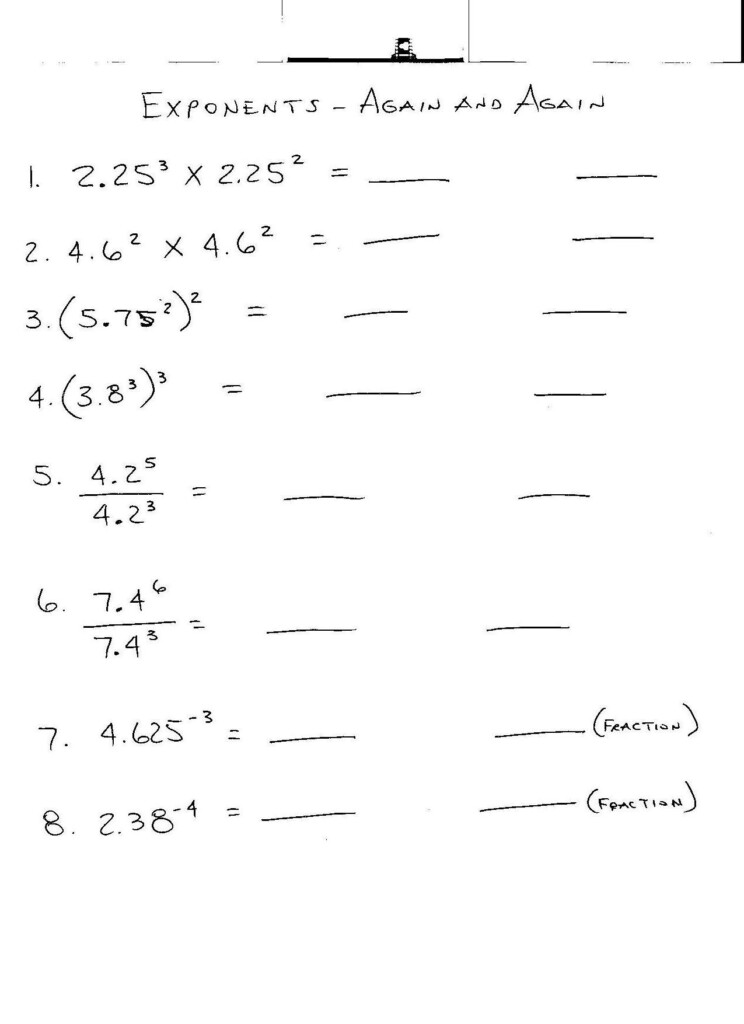 EXPONENTS - AGAIN AND AGAIN
1. 2.25³ X 2.25² = ____ ____
2. 4.6² X 4.6² = ____ ____
3. (5.75²)² = ____ ____
4. (3.8³)³ = ____ ____
5. 4.2⁵ / 4.2³ = ____ ____
6. 7.4⁶ / 7.4³ = ____ ____
7. 4.625⁻³ = ____ ____ (FRACTION)
8. 2.38⁻⁴ = ____ ____ (FRACTION)